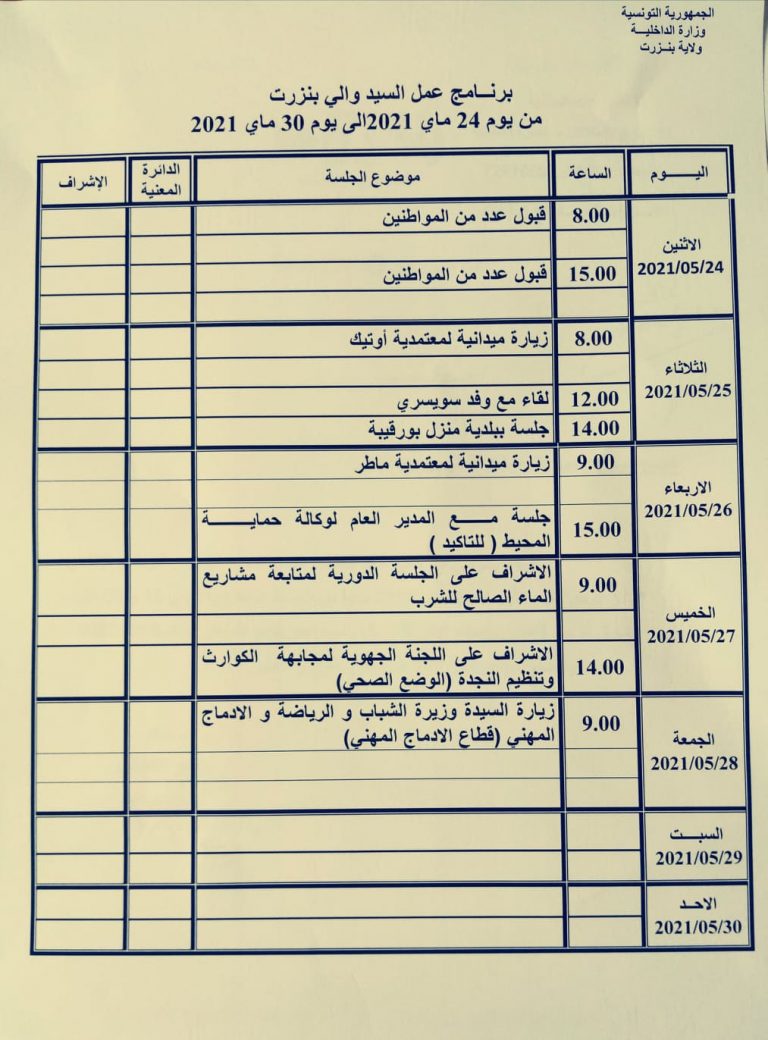 الجمهورية التونسية
وزارة الداخليـــة
ولاية بنــزرت
برنـــامج عمل السيد والي بنزرت
من يوم 24 ماي 2021الى يوم 30 ماي 2021
اليـــــوم الساعة موضوع الجلسة الدائرة المعنية الإشراف
الاثنين
2021/05/24
8.00 قبول عدد من المواطنين
15.00 قبول عدد من المواطنين
الثلاثاء
2021/05/25
8.00 زيارة ميدانية لمعتمدية أوتيك
12.00 لقاء مع وفد سويسري
14.00 جلسة ببلدية منزل بورقيبة
الاربعاء
2021/05/26
9.00 زيارة ميدانية لمعتمدية ماطر
15.00 جلسة مـــع المدير العام لوكالة حمايـــــة
المحيط ( للتاكيد )
الخميس
2021/05/27
9.00 الاشراف على الجلسة الدورية لمتابعة مشاريع
الماء الصالح للشرب
14.00 الاشراف على اللجنة الجهوية لمجابهة الكوارث
وتنظيم النجدة (الوضع الصحي)
الجمعة
2021/05/28
9.00 زيارة السيدة وزيرة الشباب و الرياضة و الادماج
المهني (قطاع الادماج المهني)
السبــت
2021/05/29
الاحـد
2021/05/30